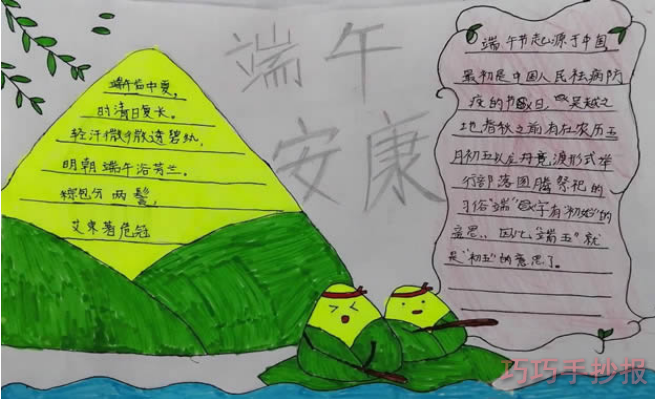 端午
安康
端午临中夏,
时清日复长。
轻汗微微透碧纨,
明朝端午浴芳兰。
粽包分两髻,
艾束著危冠
端午节起源于中国,
最初是中国人民祛病防
疫的节日,吴越之
地春秋之前有在农历五
月初五以龙舟竞渡形式举
行部落图腾祭祀的
习俗"端"字有"初始"的
意思、因此"端五"就
是"初五"的意思了。
巧巧手抄报